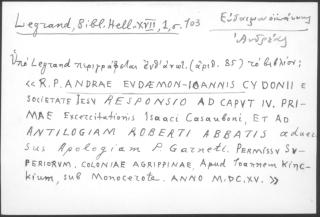 Legrand, Bibl. Hell. XVII, 1, σ. 103
Εὐδαιμονοϊωάννης
Ἀνδρέας
Ὑπὸ Legrand περιγράφεται ἐνθ' ἀνωτ. (ἀριθ. 85) τὸ βιβλίον:
«R.P. ANDRAE EVDÆMON-IOANNIS CYDONII E
SOCIETATE IESV RESPONSIO AD CAPVT IV. PRI-
MAE Exercitationis Isaaci Casauboni, ET AD
ANTILOGIAM ROBERTI ABBATIS aduer
sus Apologiam P. Garneti. PERMISSV SV-
PERIORVM. COLONIAE AGRIPPINAE, Apud Ioannem Kinc-
kium, sub Monocerote. ANNO M.DC.XV.»